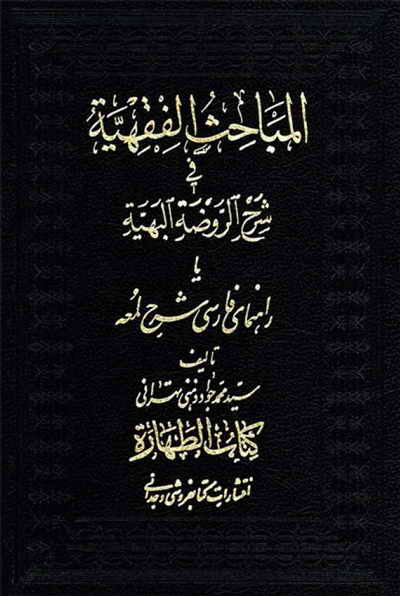 المَبَاحِثُ الفِقهِيَّة
في
شَرْحِ الرَّوضَةِ البَهيَّةِ
یا
راهنمای فارسی شرح لمعه
تألیف
سید محمد جواد ذهنی تهرانی
كِتابُ الطَّهارَة
انتشارات کتابفروشی وجدانی